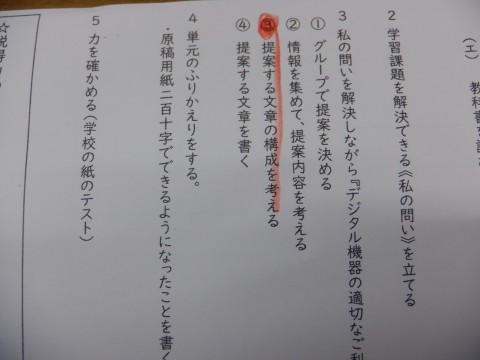 （エ） 教科書を
2 学習課題を解決できる《私の問い》を立てる
3 私の問いを解決しながら『デジタル機器の適切なご利
① グループで提案を決める
② 情報を集めて、提案内容を考える
③ 提案する文章の構成を考える
④ 提案する文章を書く
4 単元のふりかえりをする。
・原稿用紙二百十字でできるようになったことを書く
5 力を確かめる（学校の紙のテスト）
☆説得